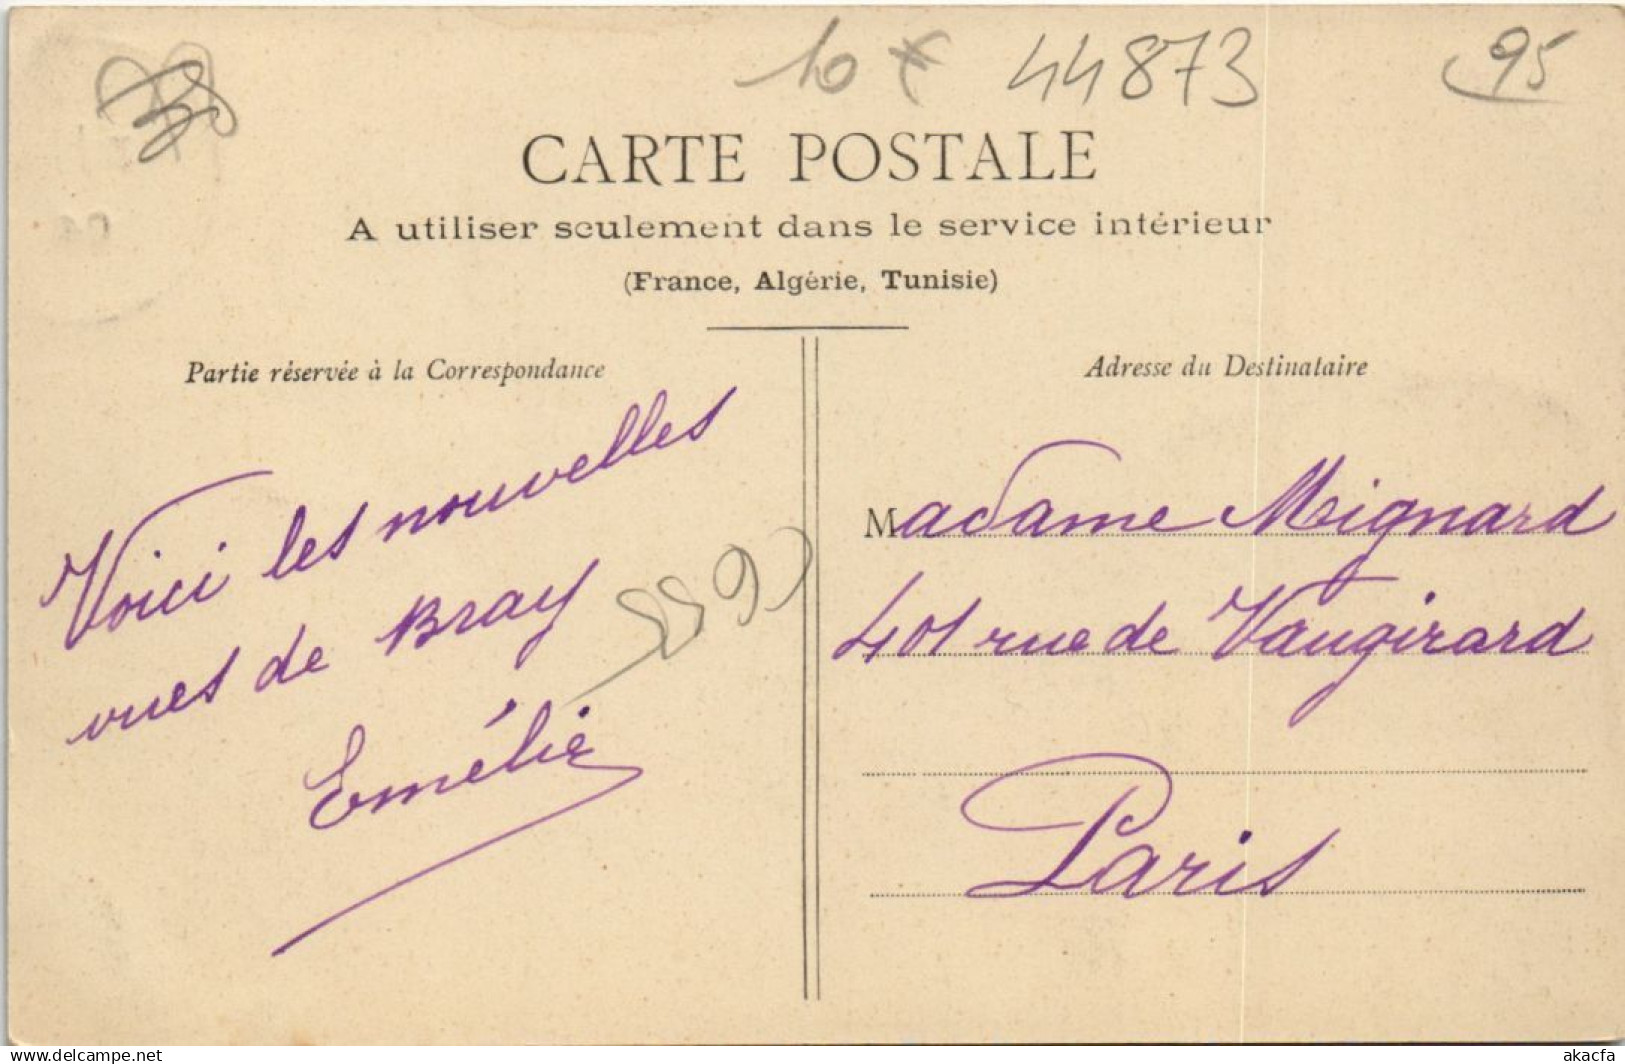 10 € 44873 95
CARTE POSTALE
A utiliser seulement dans le service intérieur
(France, Algérie, Tunisie)
Partie réservée à la Correspondance
Voici les nouvelles
vues de Bray
Emélie
Adresse du Destinataire
Madame Meignard
401 rue de Vaugirard
Paris
www.delcampe.net
akacfa